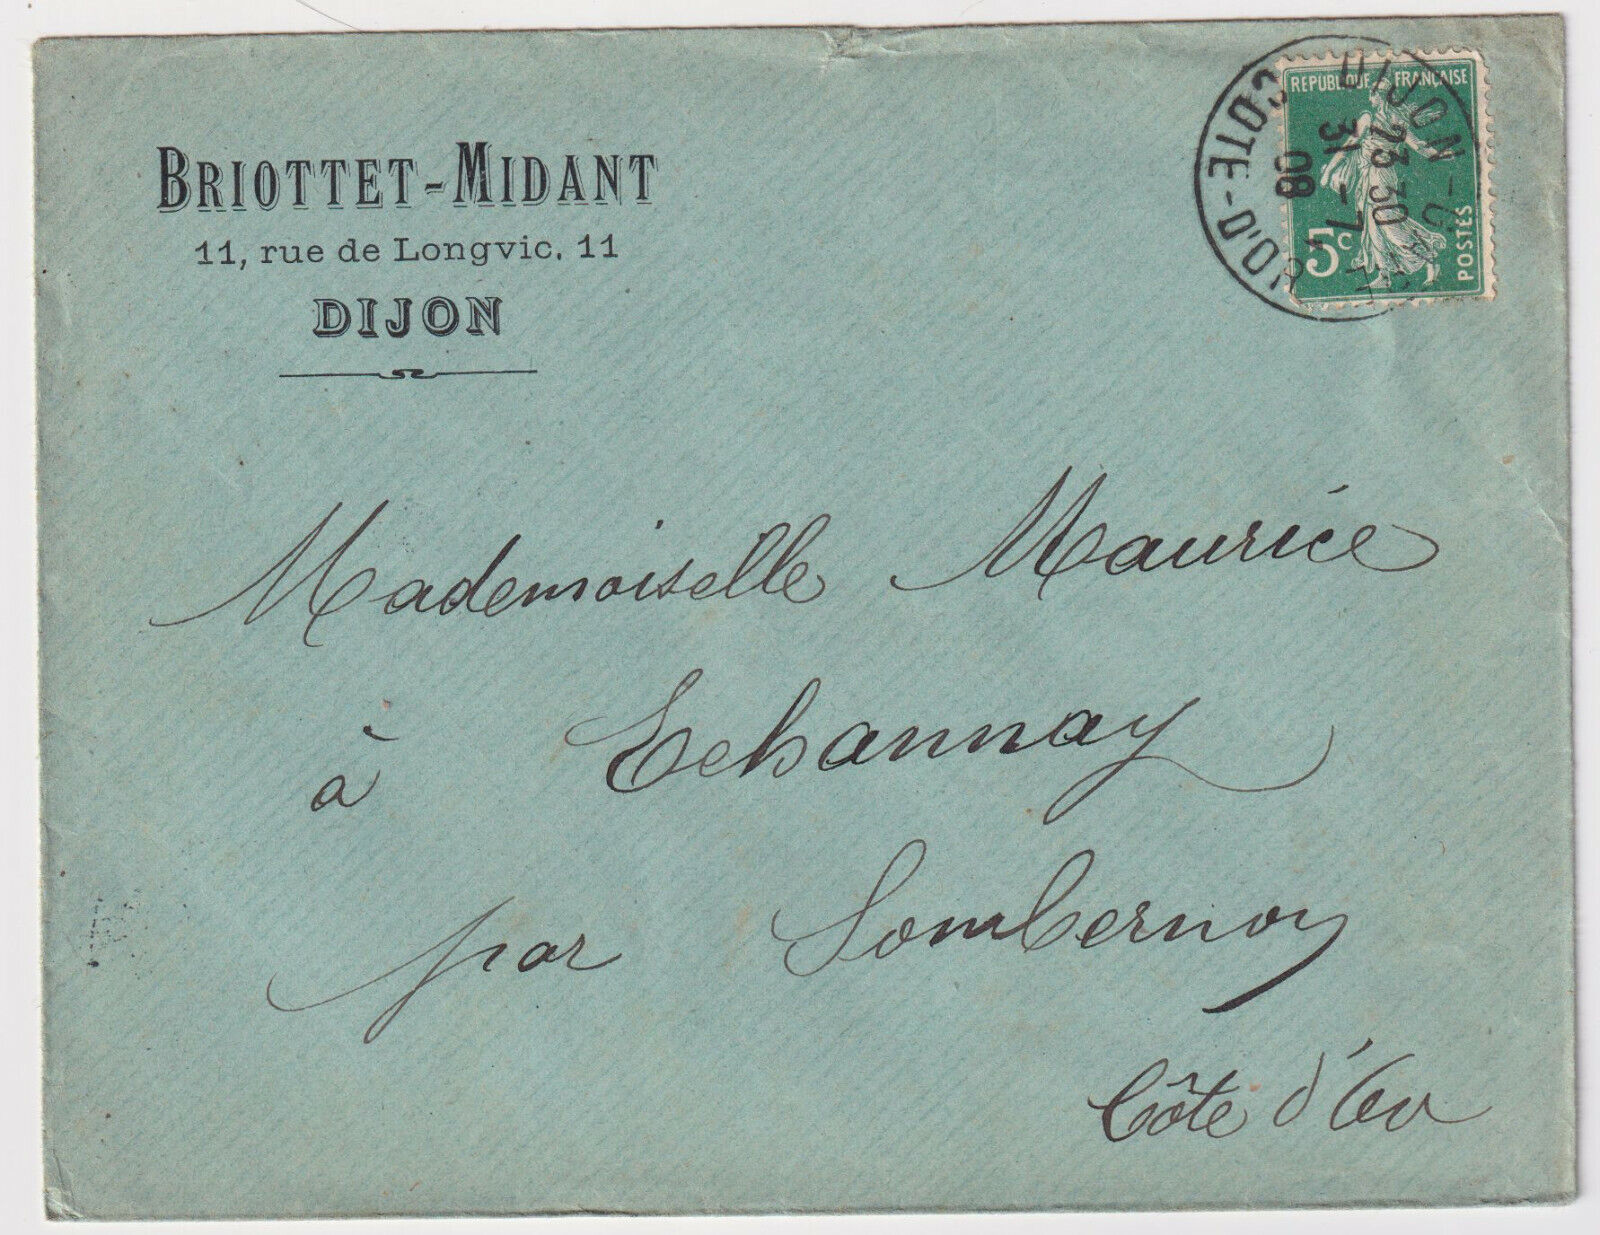 BRIOTTET-MIDANT
11, rue de Longvic, 11
DIJON
REPUBLIQUE FRANÇAISE
5c
POSTES
DIJON-GARE
23 30
31-7
08
COTE-D'OR
Mademoiselle Maurice
à Echannay
par Sombernon
Côte d'Or